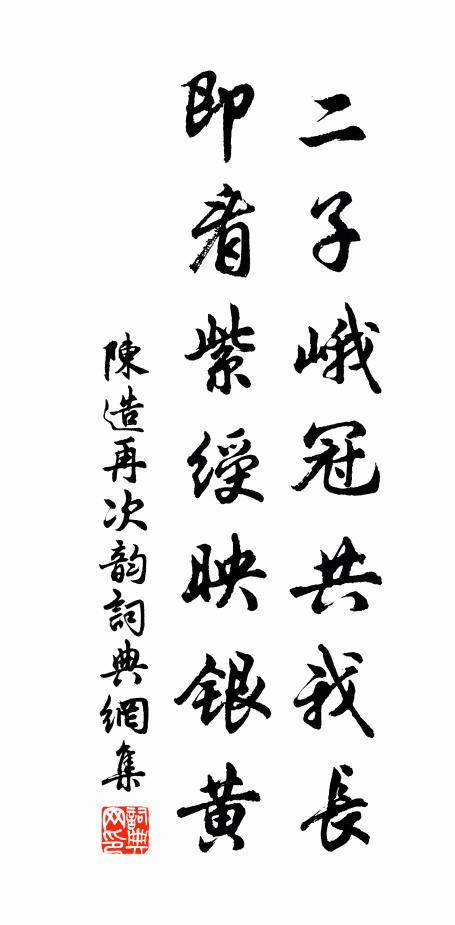 二子峨冠共我長
即看紫綬映銀黄
陳造再次韵詞典網集
詞典網印